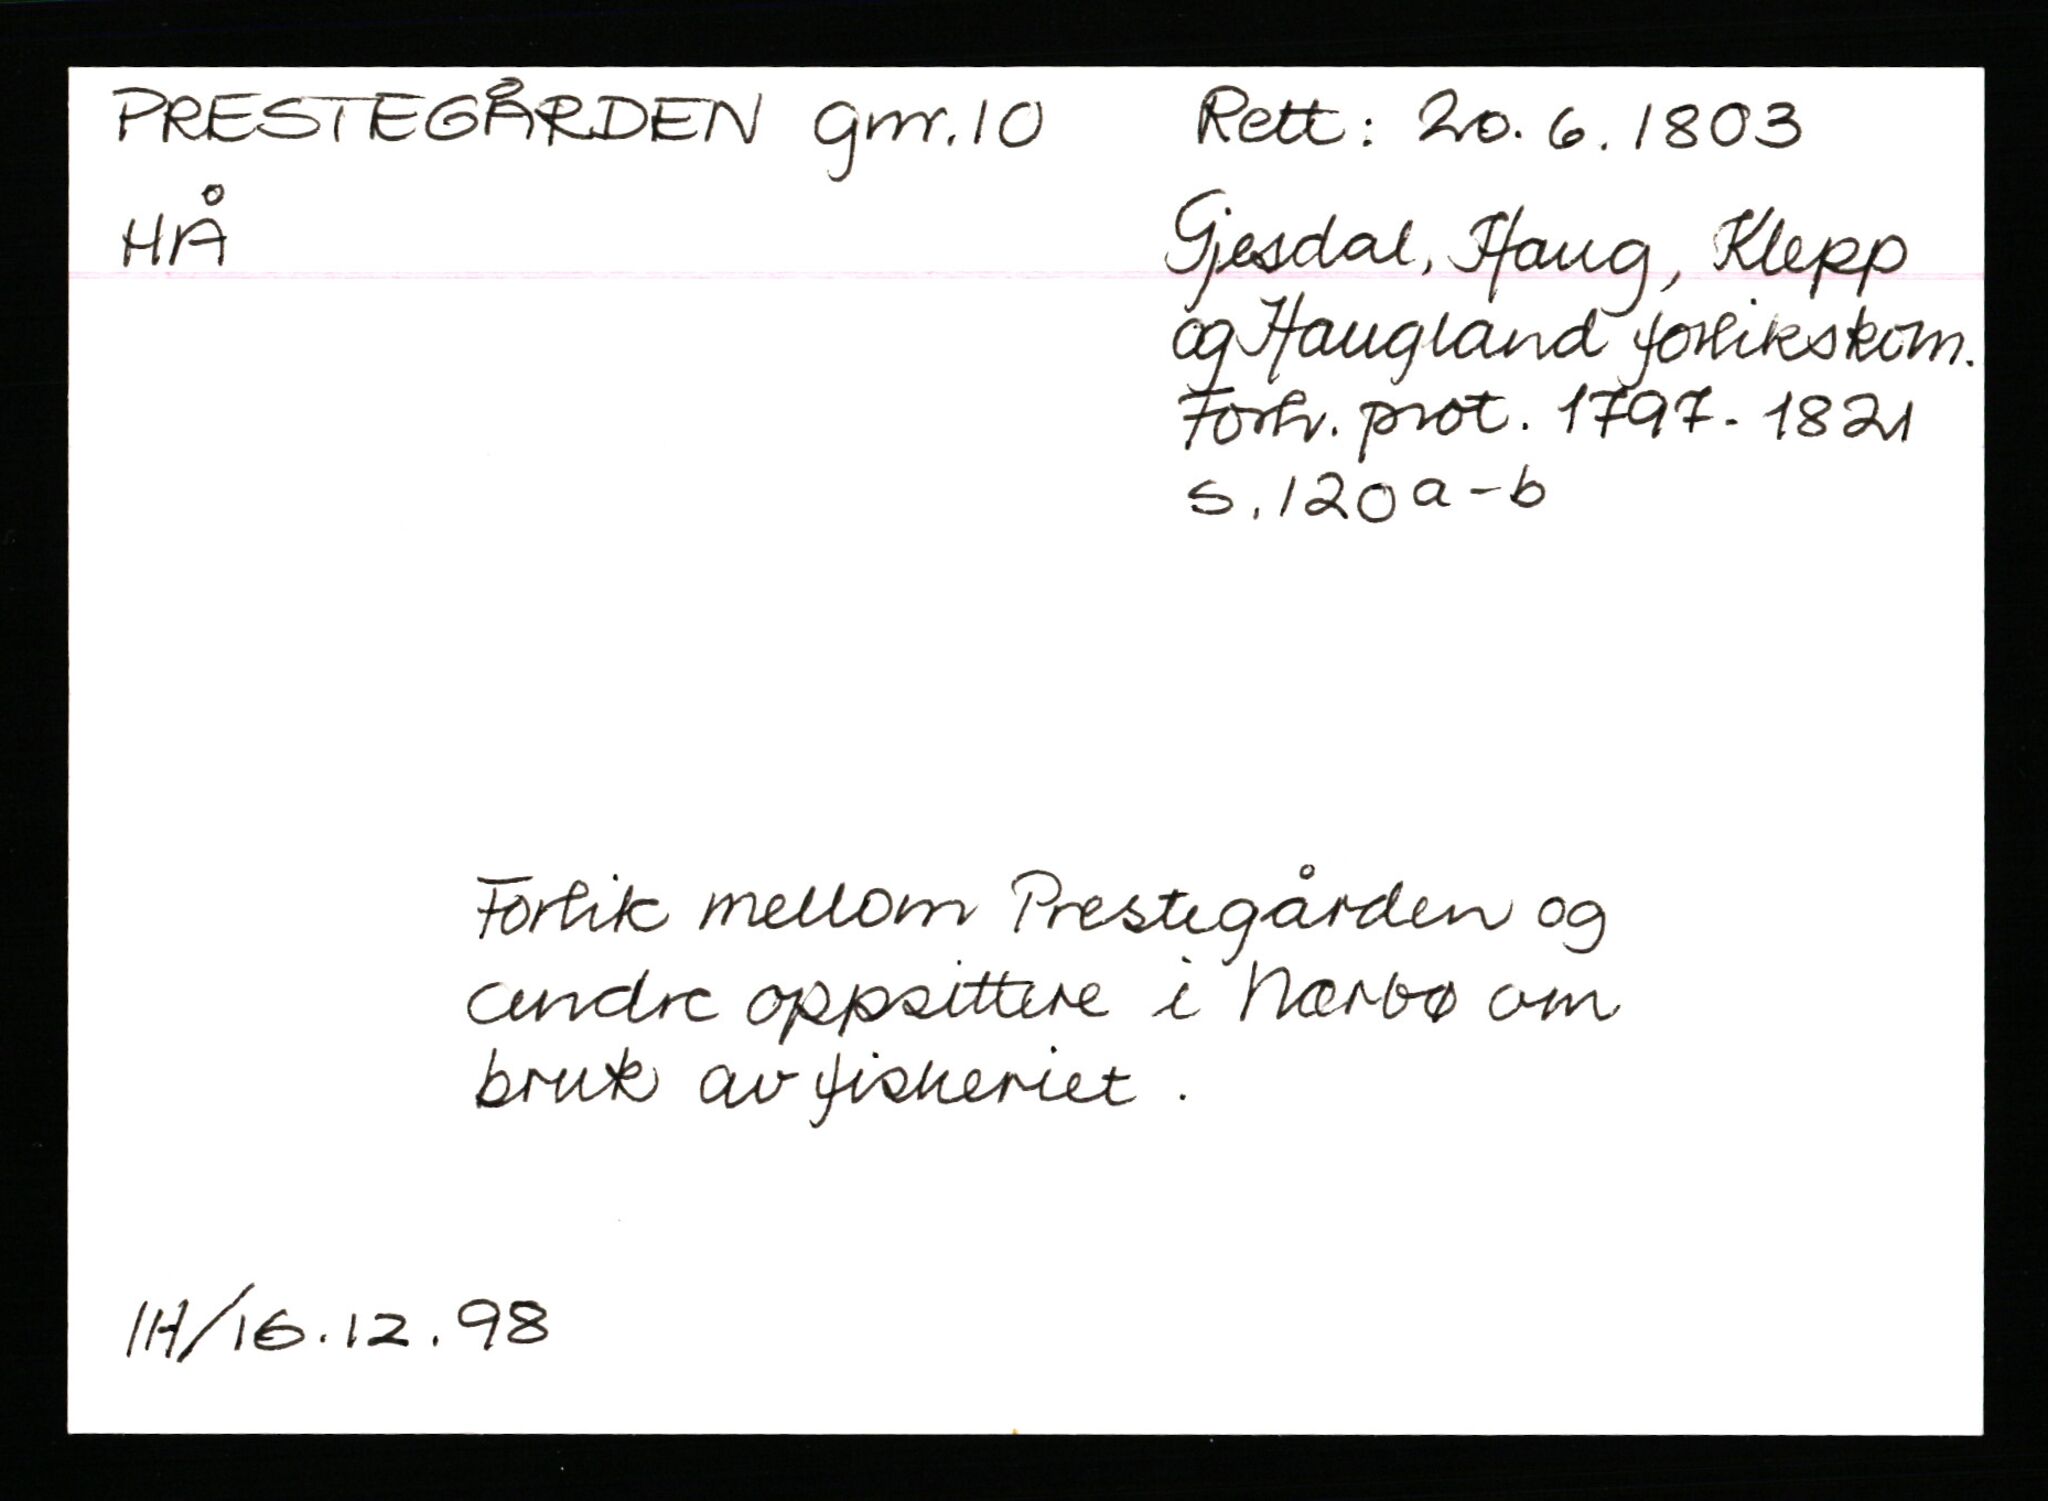 PRESTEGÅRDEN gnr. 10
HÅ
Rett: 20. 6. 1803
Gjesdal, Haug, Klepp
og Haugland forlikskom.
Forh. prot. 1797 - 1821
s. 120 a - b
Forlik mellom Prestegården og
andre oppsittere i Nærbø om
bruk av fiskeriet.
IH/16.12.98